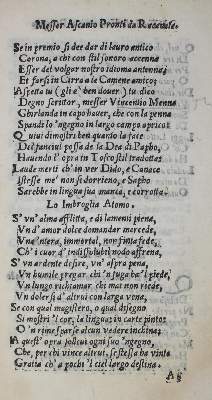 Messer Ascanio Pronti da Racciuole.
Se in premio si dee dar di lauro antico
Corona, a chi con stil sonoro accenna
Esser del volgar nostro idioma antenna;
Et farsi in Cirra a le Camene amico;
Aspetta tu (gli e ben dover) tu dico
Degno scrittor, messer Vincentio Menna
Ghirlanda in capo hauer, che con la penna
Spandi lo 'ngegno in largo campo aprico.
Quiui dimostri ben quanto la face
Del fanciul possa de la Dea di Papho,
Hauendo l'opra in Tosco stil tradotta:
Laude merti ch'in ver Dido, e Canace
Istesse me' non se dorrieno, e Sapho
Sarebbe in lingua sua manca, e corrotta.
Lo Imbroglia Atomo.
S'vn' alma afflitta, e di lamenti piena,
Vn d'amor dolce domandar mercede,
Vna 'ntera, immortal, non finta fede,
Ch'i cuor d'indissolubil nodo affrena,
S'vn ardente desire, vn' aspra pena,
Vn humile pregar chi 'n fuga ha'l piede,
Vn lungo richiamar chi mai non riede,
Vn doler si d'altrui con larga vena,
Se con qual magistero, o qual disegno
Si mostri 'l cor, la lingua, in carte pinto:
O'n rime sparse alcun vedere inchina;
A quest' opra sollevi ogni suo 'ngegno,
Che, per chi vince altrui, se stessa ha vinta
Gratia ch'a pochi 'l ciel largo destina.